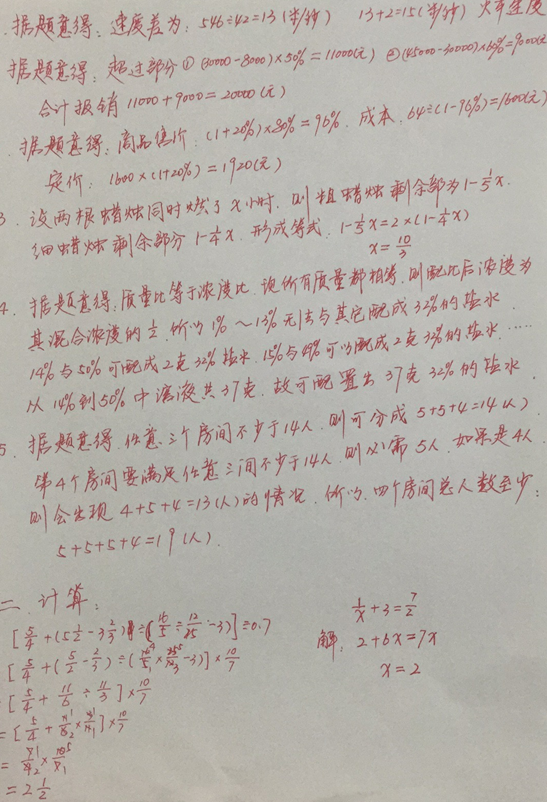 据题意得: 速度差为: 546÷42=13(米/秒) 13+2=15(米/秒) 火车速度
据题意得: 超过部分①(30000-8000)×50%=11000(元) ②(45000-30000)×60%=9000(元
合计报销 11000+9000=20000(元)
据题意得: 商品售价: (1+20%)×80%=96%. 成本: 64÷(1-96%)=1600(元)
定价: 1600×(1+20%)=1920(元)
3. 设两根蜡烛同时燃了x小时. 则粗蜡烛剩余部为1-1/5x.
细蜡烛剩余部分1-1/4x. 形成等式: 1-1/5x=2×(1-1/4x)
x=10/3
4. 据题意得: 质量比等于浓度比. 设所有质量都相等. 则配比后浓度为
其混合浓度的1/2. 所以1%~13%无法与其它配成32%的盐水.
14%与50%可配成2克32%盐水. 15%与49%可以配成2克32%的盐水……
从14%到50%中溶液共37克. 故可配置出37克32%的盐水.
5. 据题意得. 任意三个房间不少于14人. 则可分成5+5+4=14(人)
第4个房间要满足任意三间不少于14人. 则必需5人. 如果是4人.
则会出现 4+5+4=13(人)的情况. 所以. 四个房间总人数至少:
5+5+5+4=19(人).
二. 计算:
[5/4+(5 1/2-3 2/3)÷(16/5÷12/25-3)]÷0.7
[5/4+(5/2-2/3)÷(16/5×25/12-3)]×10/7
[5/4+11/6÷11/3]×10/7
=[5/4+11/6×3/11]×10/7
=7/4×10/7
=2 1/2
1/x+3=7/2
解: 2+6x=7x
x=2